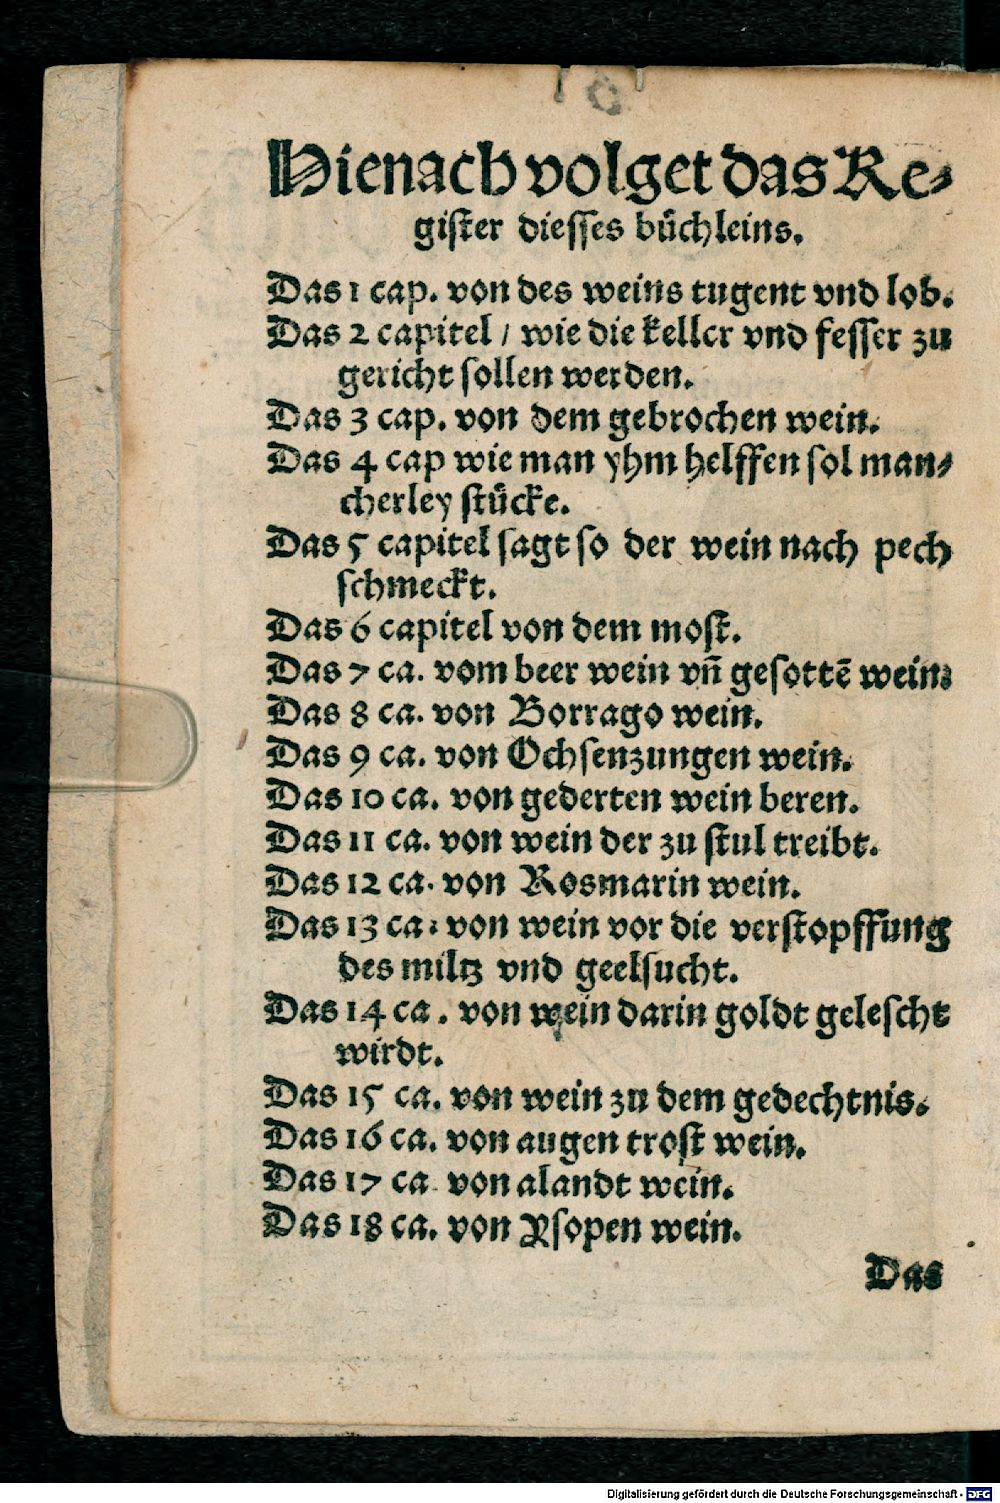 Hienach volget das Re⸗
gister diesses bůchleins.
Das 1 cap. von des weins tugent vnd lob.
Das 2 capitel / wie die keller vnd fesser zu
gericht sollen werden.
Das 3 cap. von dem gebrochen wein.
Das 4 cap wie man yhm helffen sol man⸗
cherley stůcke.
Das 5 capitel sagt so der wein nach pech
schmeckt.
Das 6 capitel von dem most.
Das 7 ca. vom beer wein vñ gesottē wein.
Das 8 ca. von Borrago wein.
Das 9 ca. von Ochsenzungen wein.
Das 10 ca. von gederten wein beren.
Das 11 ca. von wein der zu stul treibt.
Das 12 ca. von Rosmarin wein.
Das 13 ca: von wein vor die verstopffung
des miltz vnd geelsucht.
Das 14 ca. von wein darin goldt gelescht
wirdt.
Das 15 ca. von wein zu dem gedechtnis.
Das 16 ca. von augen trost wein.
Das 17 ca. von alandt wein.
Das 18 ca. von Ysopen wein.
Das
Digitalisierung gefördert durch die Deutsche Forschungsgemeinschaft - DFG